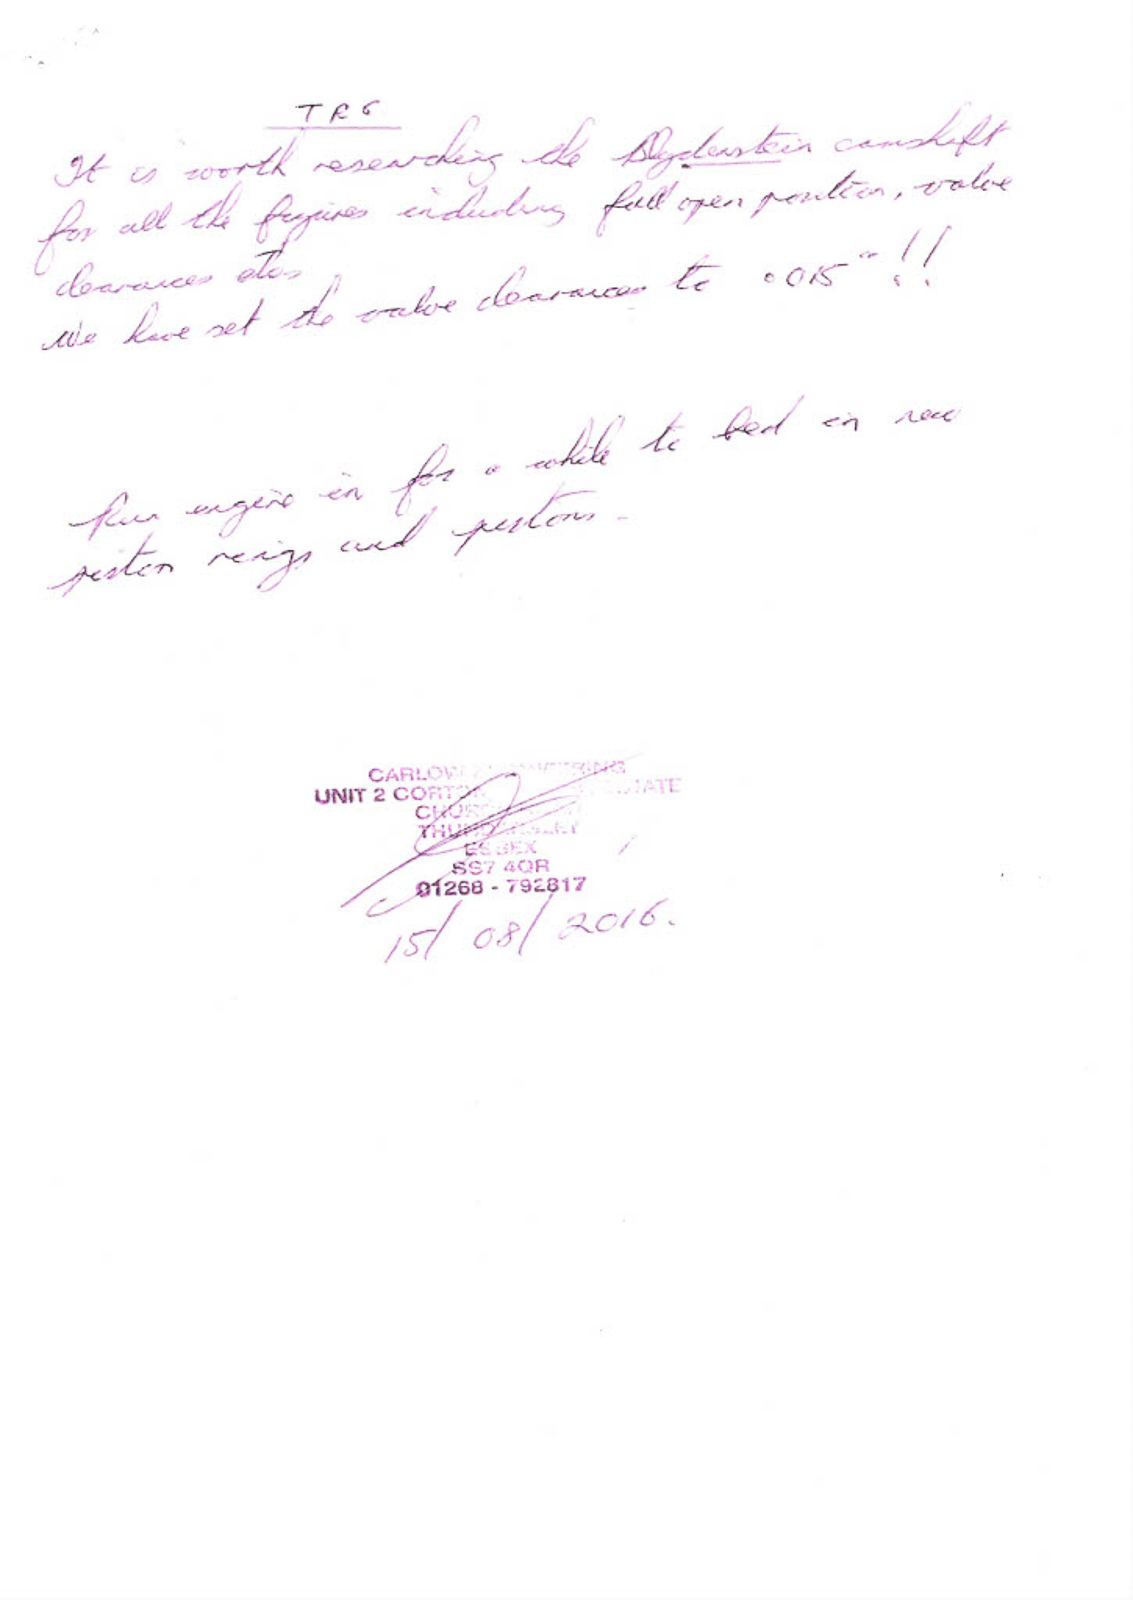 TR6
It is worth researching the Blydenstein camshaft
for all the figures including full open position, valve
clearances etc.
We have set the valve clearances to .015" !!
Run engine in for a while to bed in new
piston rings and pistons.
CARLOW
UNIT 2
THUNDERSLEY
ESSEX
SS7 4QR
01268 - 792817
15/ 08/ 2016.